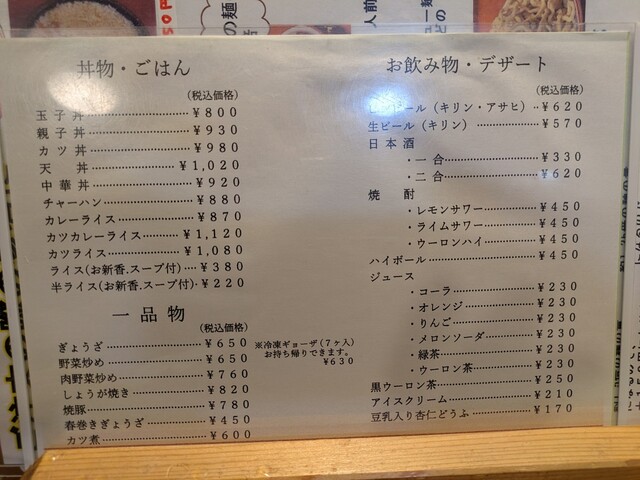 丼物・ごはん
(税込価格)
玉子丼 ¥800
親子丼 ¥930
カツ丼 ¥980
天丼 ¥1,020
中華丼 ¥920
チャーハン ¥880
カレーライス ¥870
カツカレーライス ¥1,120
カツライス ¥1,080
ライス(お新香,スープ付) ¥380
半ライス(お新香,スープ付) ¥220
一品物
(税込価格)
ぎょうざ ¥650
野菜炒め ¥650
肉野菜炒め ¥760
しょうが焼き ¥820
焼豚 ¥780
春巻きぎょうざ ¥450
カツ煮 ¥600
※冷凍ギョーザ(7ヶ入)
お持ち帰りできます。
¥630
お飲み物・デザート
(税込価格)
ビール(キリン・アサヒ) ¥620
生ビール(キリン) ¥570
日本酒
・一合 ¥330
・二合 ¥620
焼酎
・レモンサワー ¥450
・ライムサワー ¥450
・ウーロンハイ ¥450
ハイボール ¥450
ジュース
・コーラ ¥230
・オレンジ ¥230
・りんご ¥230
・メロンソーダ ¥230
・緑茶 ¥230
・ウーロン茶 ¥230
黒ウーロン茶 ¥250
アイスクリーム ¥210
豆乳入り杏仁どうふ ¥170
の麺
人前